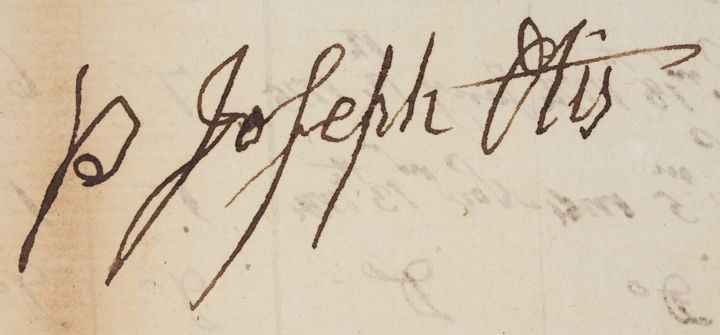 p Joseph Otis